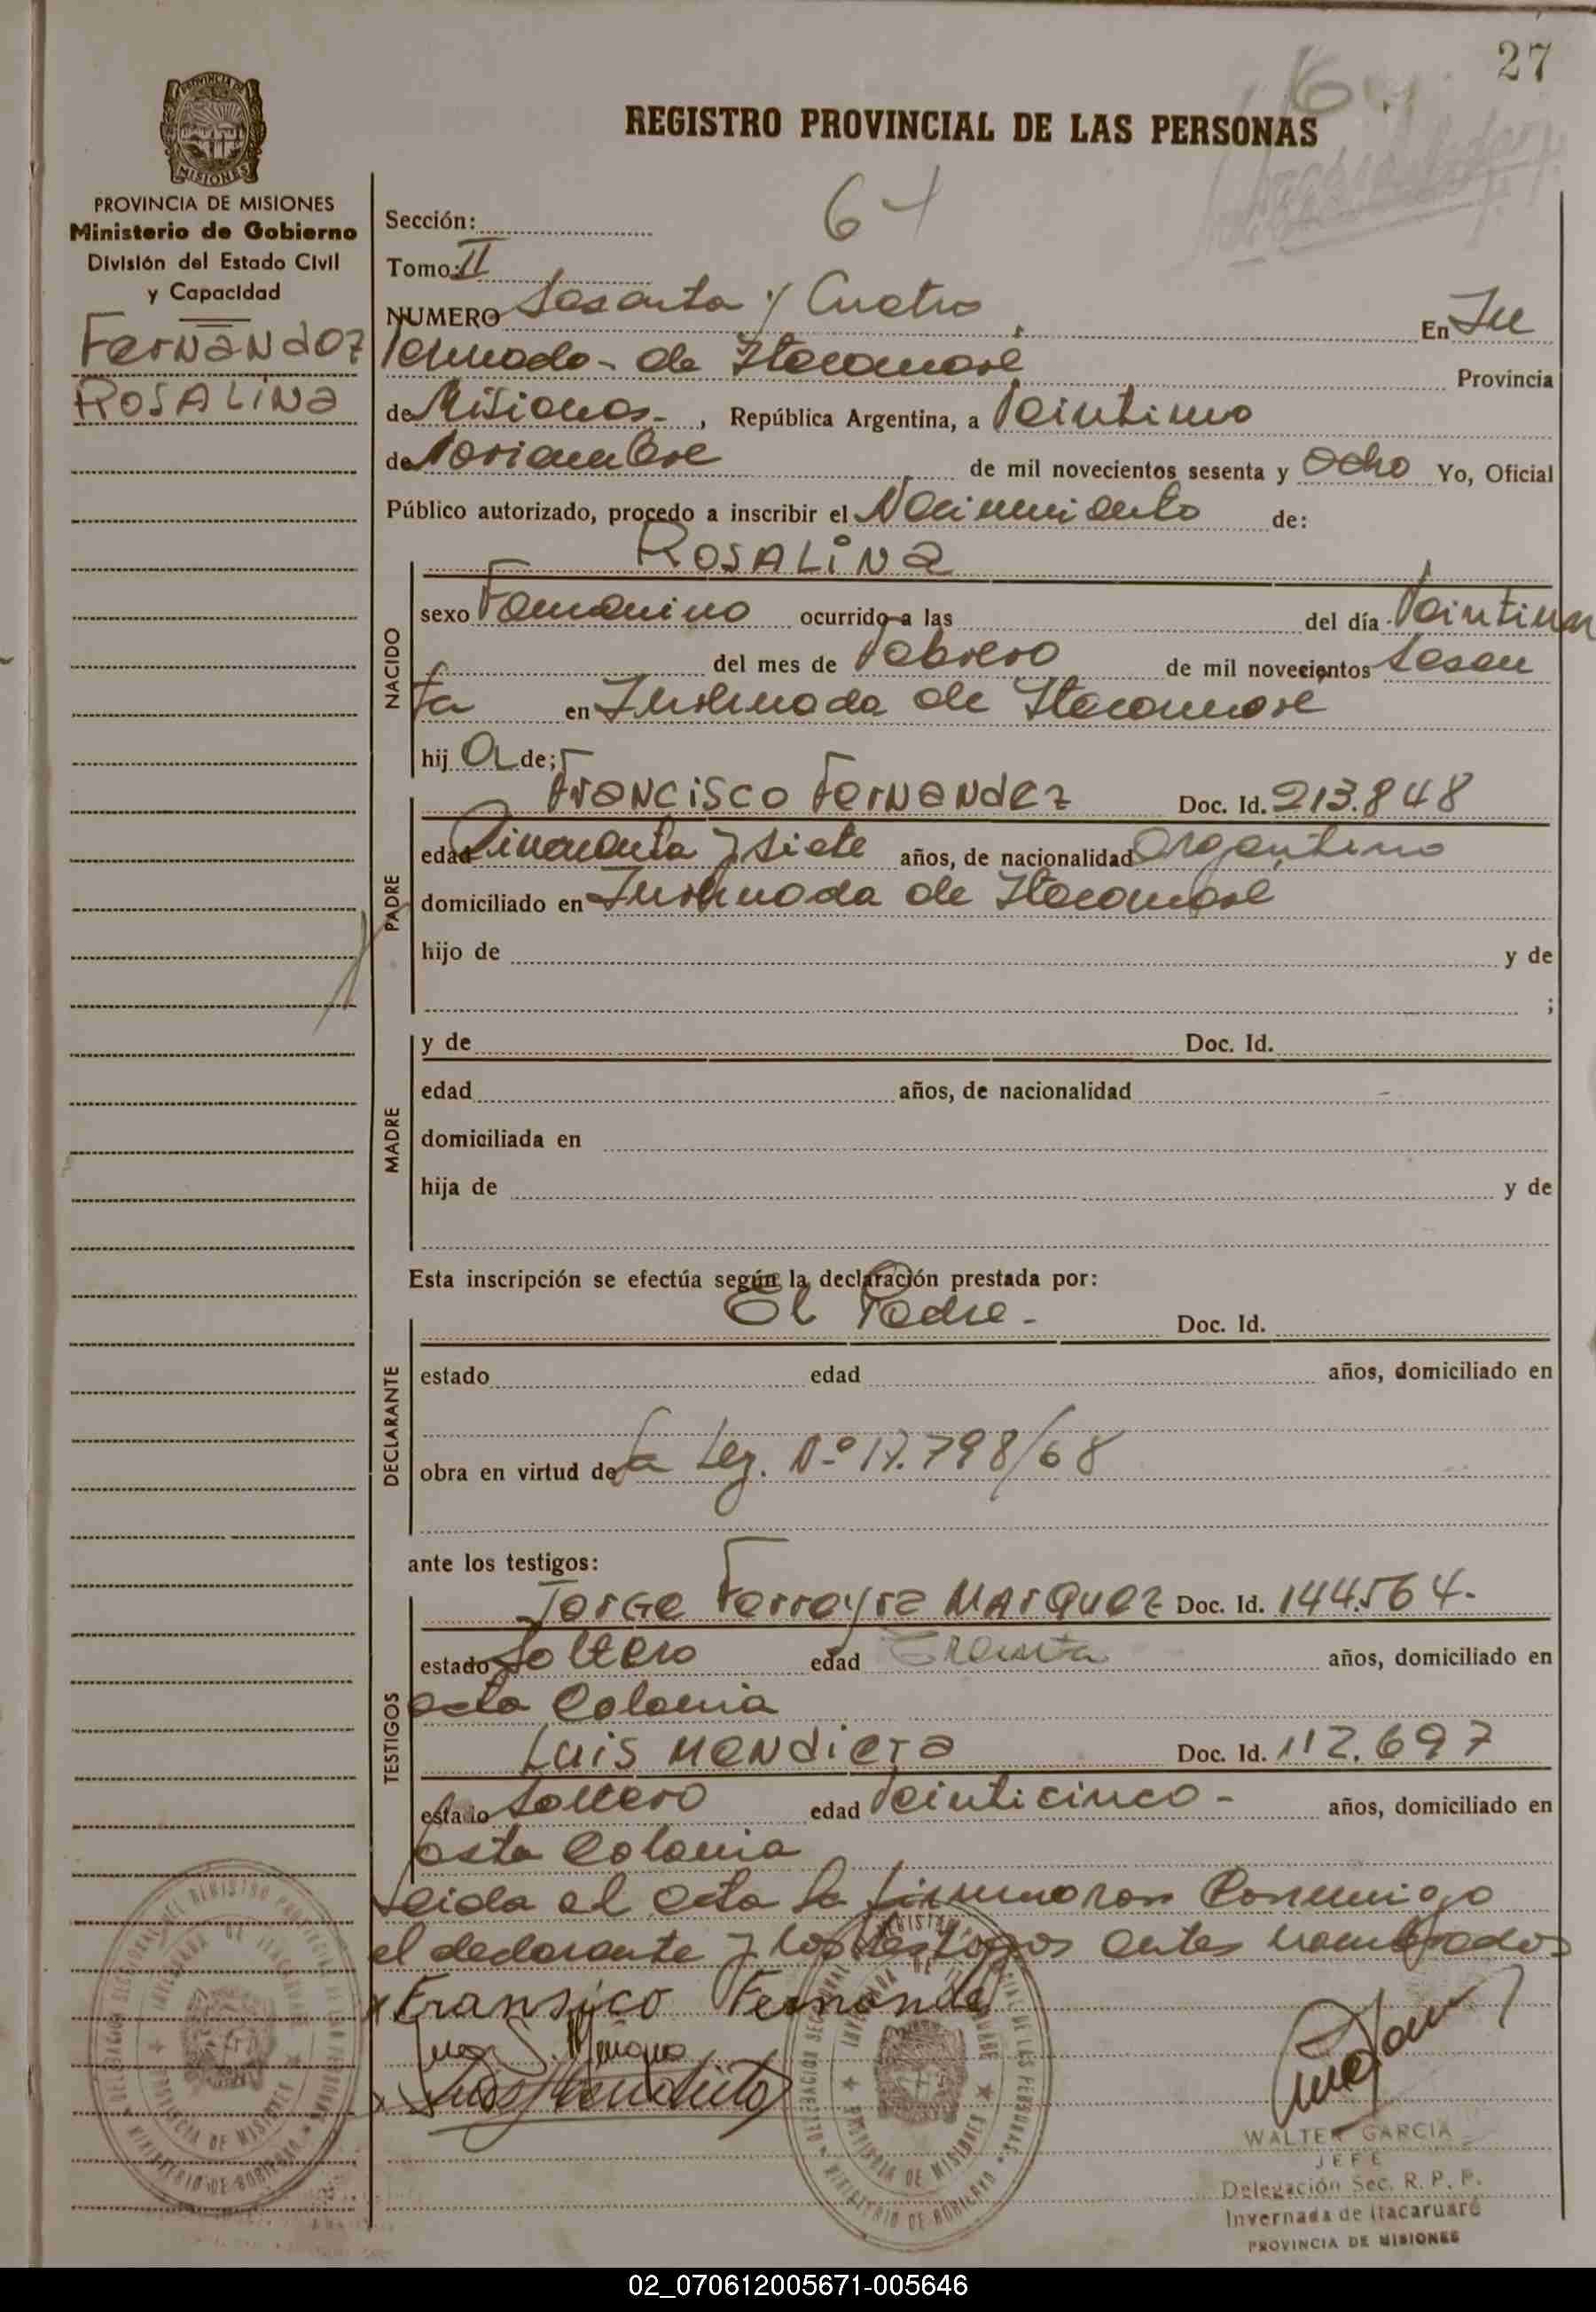 27
REGISTRO PROVINCIAL DE LAS PERSONAS
PROVINCIA DE MISIONES
Ministerio de Gobierno
División del Estado Civil
y Capacidad
Fernandez
ROSALINA
Sección:
64
Tomo: II
NUMERO Sesenta y Cuatro. En In
vernada - de Itacaruaré Provincia
de Misiones -, República Argentina, a Veintiuno
de Noviembre de mil novecientos sesenta y Ocho Yo, Oficial
Público autorizado, procedo a inscribir el Nacimiento de:
ROSALINA
NACIDO
sexo Femenino ocurrido a las del día Veintiun
del mes de Febrero de mil novecientos Sesen
ta en Invernada de Itacaruaré
hij a de;
PADRE
Francisco Fernandez Doc. Id. 213.848
edad Cincuenta y siete años, de nacionalidad Argentino
domiciliado en Invernada de Itacaruaré
hijo de y de
;
MADRE
y de Doc. Id.
edad años, de nacionalidad
domiciliada en
hija de y de
Esta inscripción se efectúa según la declaración prestada por:
DECLARANTE
El Padre - Doc. Id.
estado edad años, domiciliado en
obra en virtud de la Ley. Nº 17.798/68
ante los testigos:
TESTIGOS
Jorge Ferreyra Marquez Doc. Id. 144.564.
estado Soltero edad Treinta años, domiciliado en
esta Colonia
Luis Mendieta Doc. Id. 112.697
estado Soltero edad Veinticinco - años, domiciliado en
esta Colonia
Leida el acta la firmaron Conmigo
el declarante y los testigos antes nombrados
Fransico Fernande
WALTER GARCIA
JEFE
Delegación Sec. R. P. P.
Invernada de Itacaruaré
PROVINCIA DE MISIONES
02_070612005671-005646